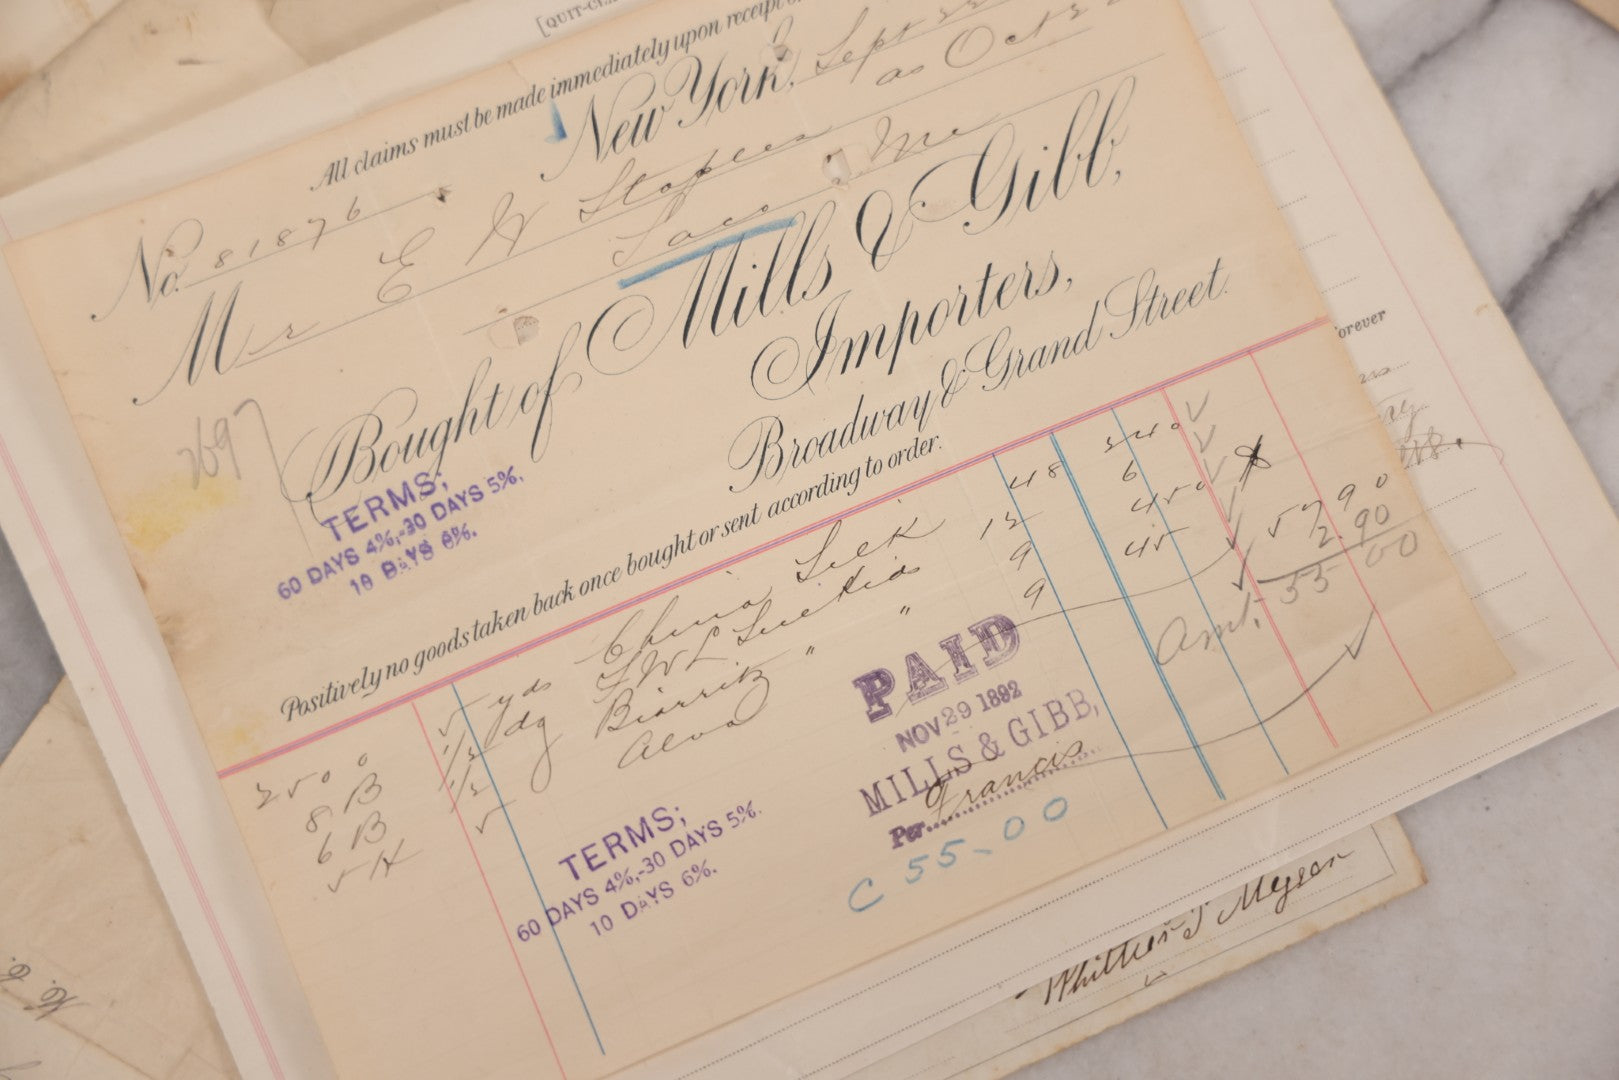 [QUIT-CL
All claims must be made immediately upon receipt o
New York, Sept 22
as Oct 22
No. 81876
Mr E W Staples
Saco, Me
Bought of Mills & Gibb,
Importers,
Broadway & Grand Street.
2697
TERMS;
60 DAYS 4%,-30 DAYS 5%.
10 DAYS 6%.
Positively no goods taken back once bought or sent according to order.
2500 5 yds China Silk 48 240
8 B 1/2 dg 12 6
6 B 1/2 Biarritz " " 9 450
5 H 5 9 45
57 90
2.90
Amt. 55 00
PAID
NOV 29 1892
MILLS & GIBB,
Per Francis
C 55.00
TERMS;
60 DAYS 4%,-30 DAYS 5%.
10 DAYS 6%.
forever
Whittier